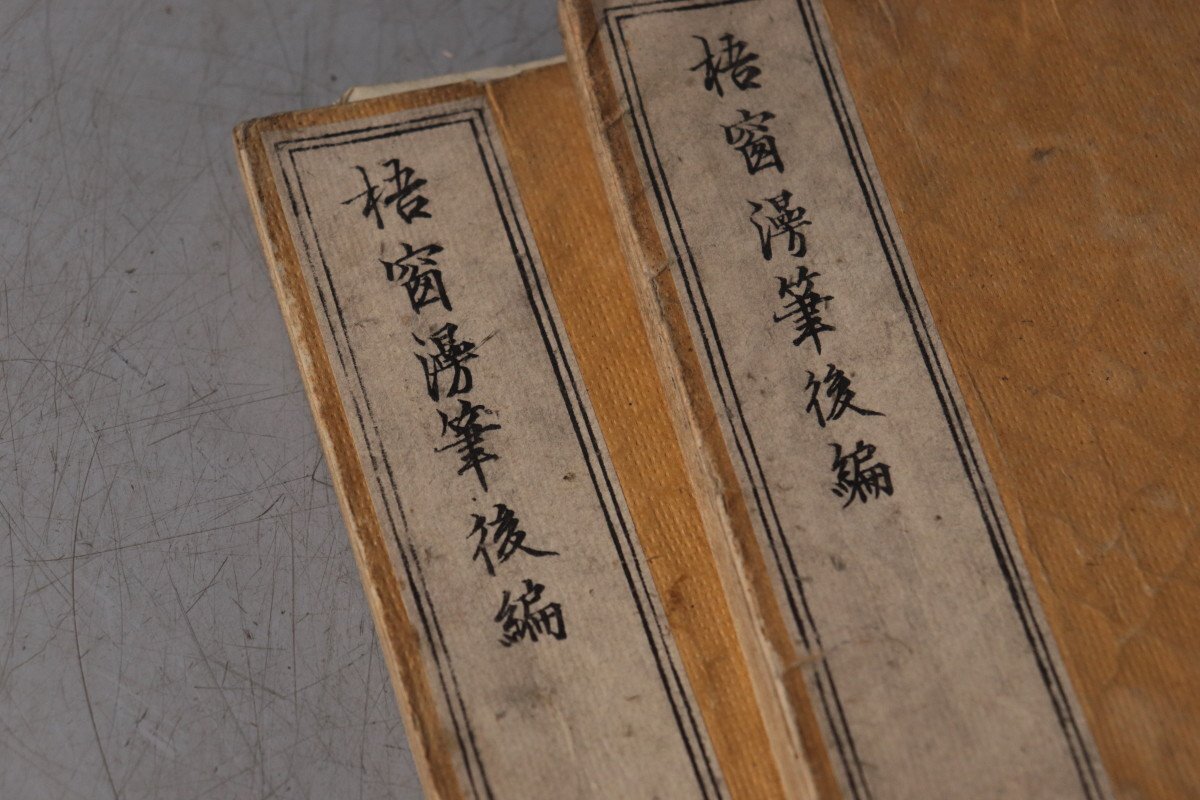 梧窗漫筆後編
梧窗漫筆後編